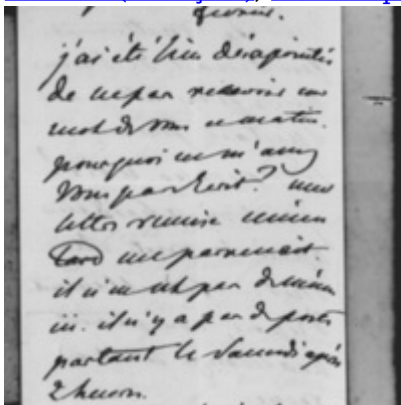 j'ai été bien désapointée
de ne pas recevoir un
mot de vous ce matin.
pourquoi ne m'avez
vous pas écrit? une
lettre remise même
tard me parvenait.
il n'en est pas de même
ici. il n'y a pas de poste
partant le Samedi après
2 heures.